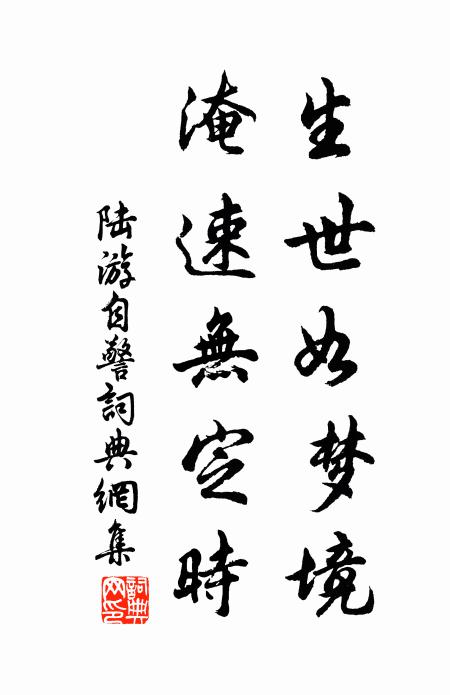 生世如梦境
淹速無定時
陆游自警詞典網集
詞典网印